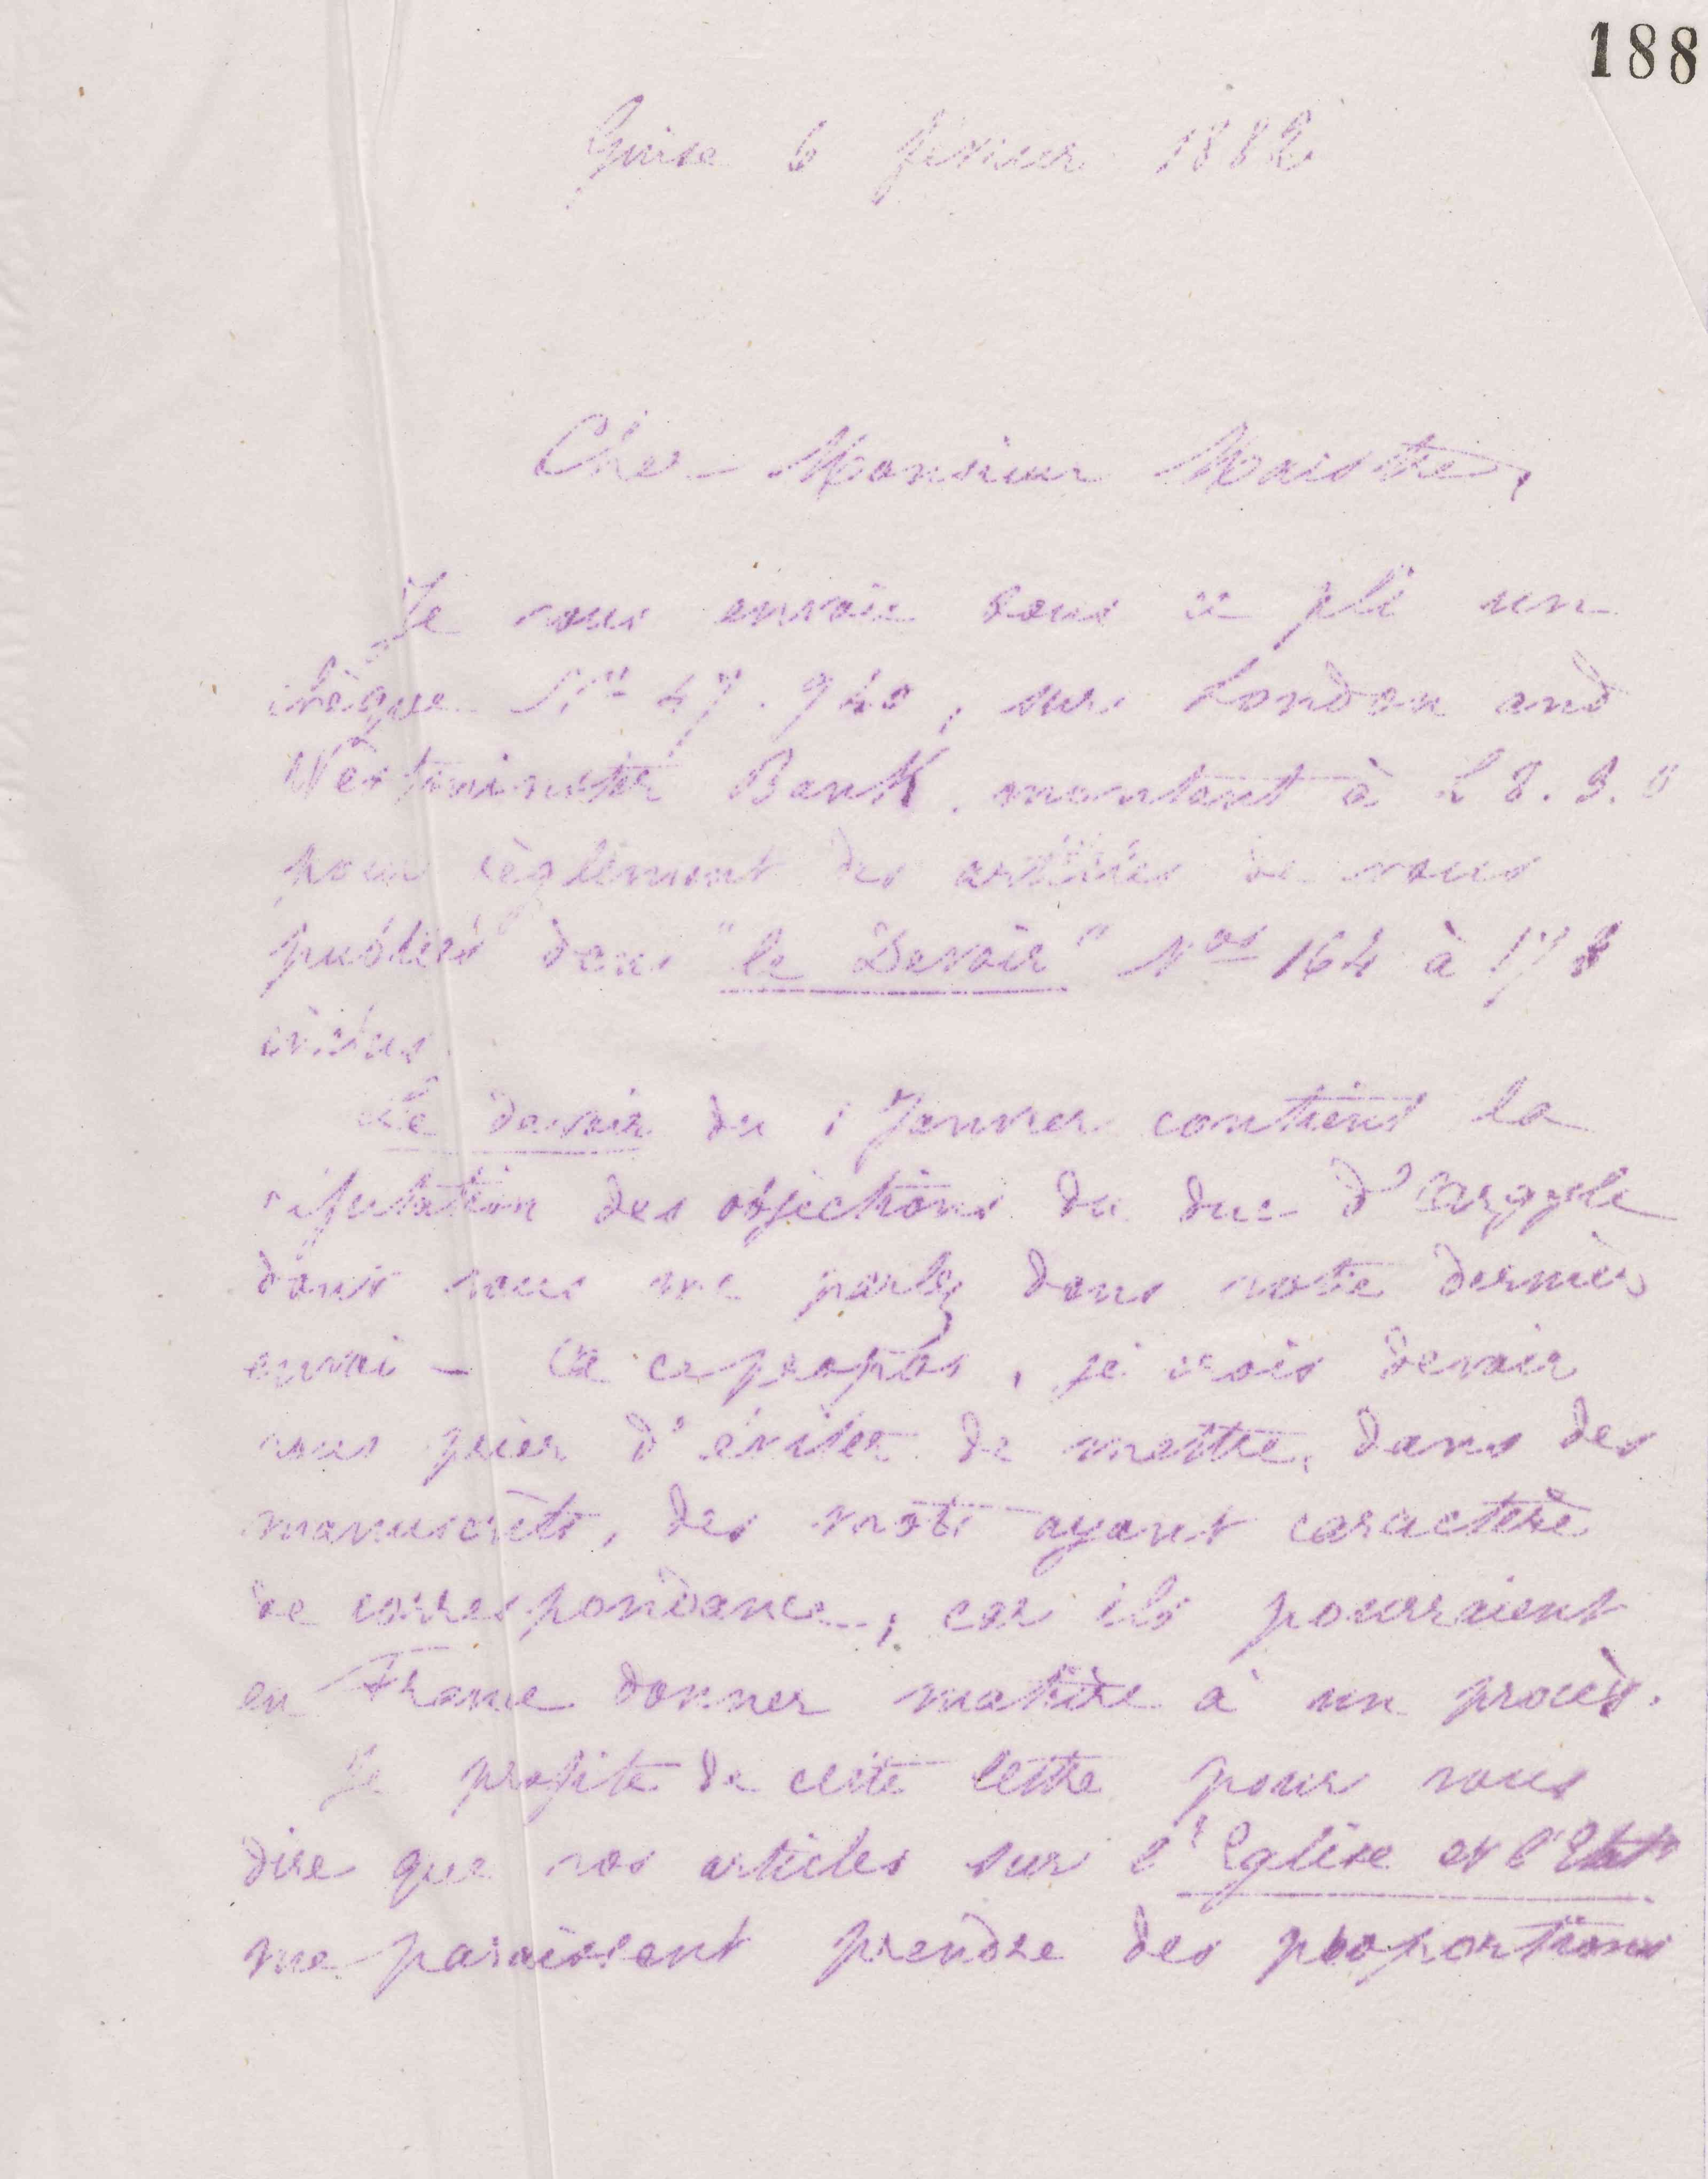 188
Guise 6 février 1882
Cher Monsieur Maistre,
Je vous envoie sous ce pli un
chèque No 47.940, sur London and
Westminster Bank, montant à £ 8.3.0
pour règlement des articles de vous
publiés dans "le Devoir" Nos 164 à 178
inclus
Le devoir du 1 Janvier contient la
réfutation des objections du duc d'Argyle
dont vous me parlez dans votre dernier
envoi - A ce propos, je crois devoir
vous prier d'éviter de mettre, dans des
manuscrits, des mots ayant caractère
de correspondance, car ils pourraient
en France donner matière à un procès.
Je profite de cette lettre pour vous
dire que vos articles sur l'Eglise et l'Etat
me paraissent prendre des proportions